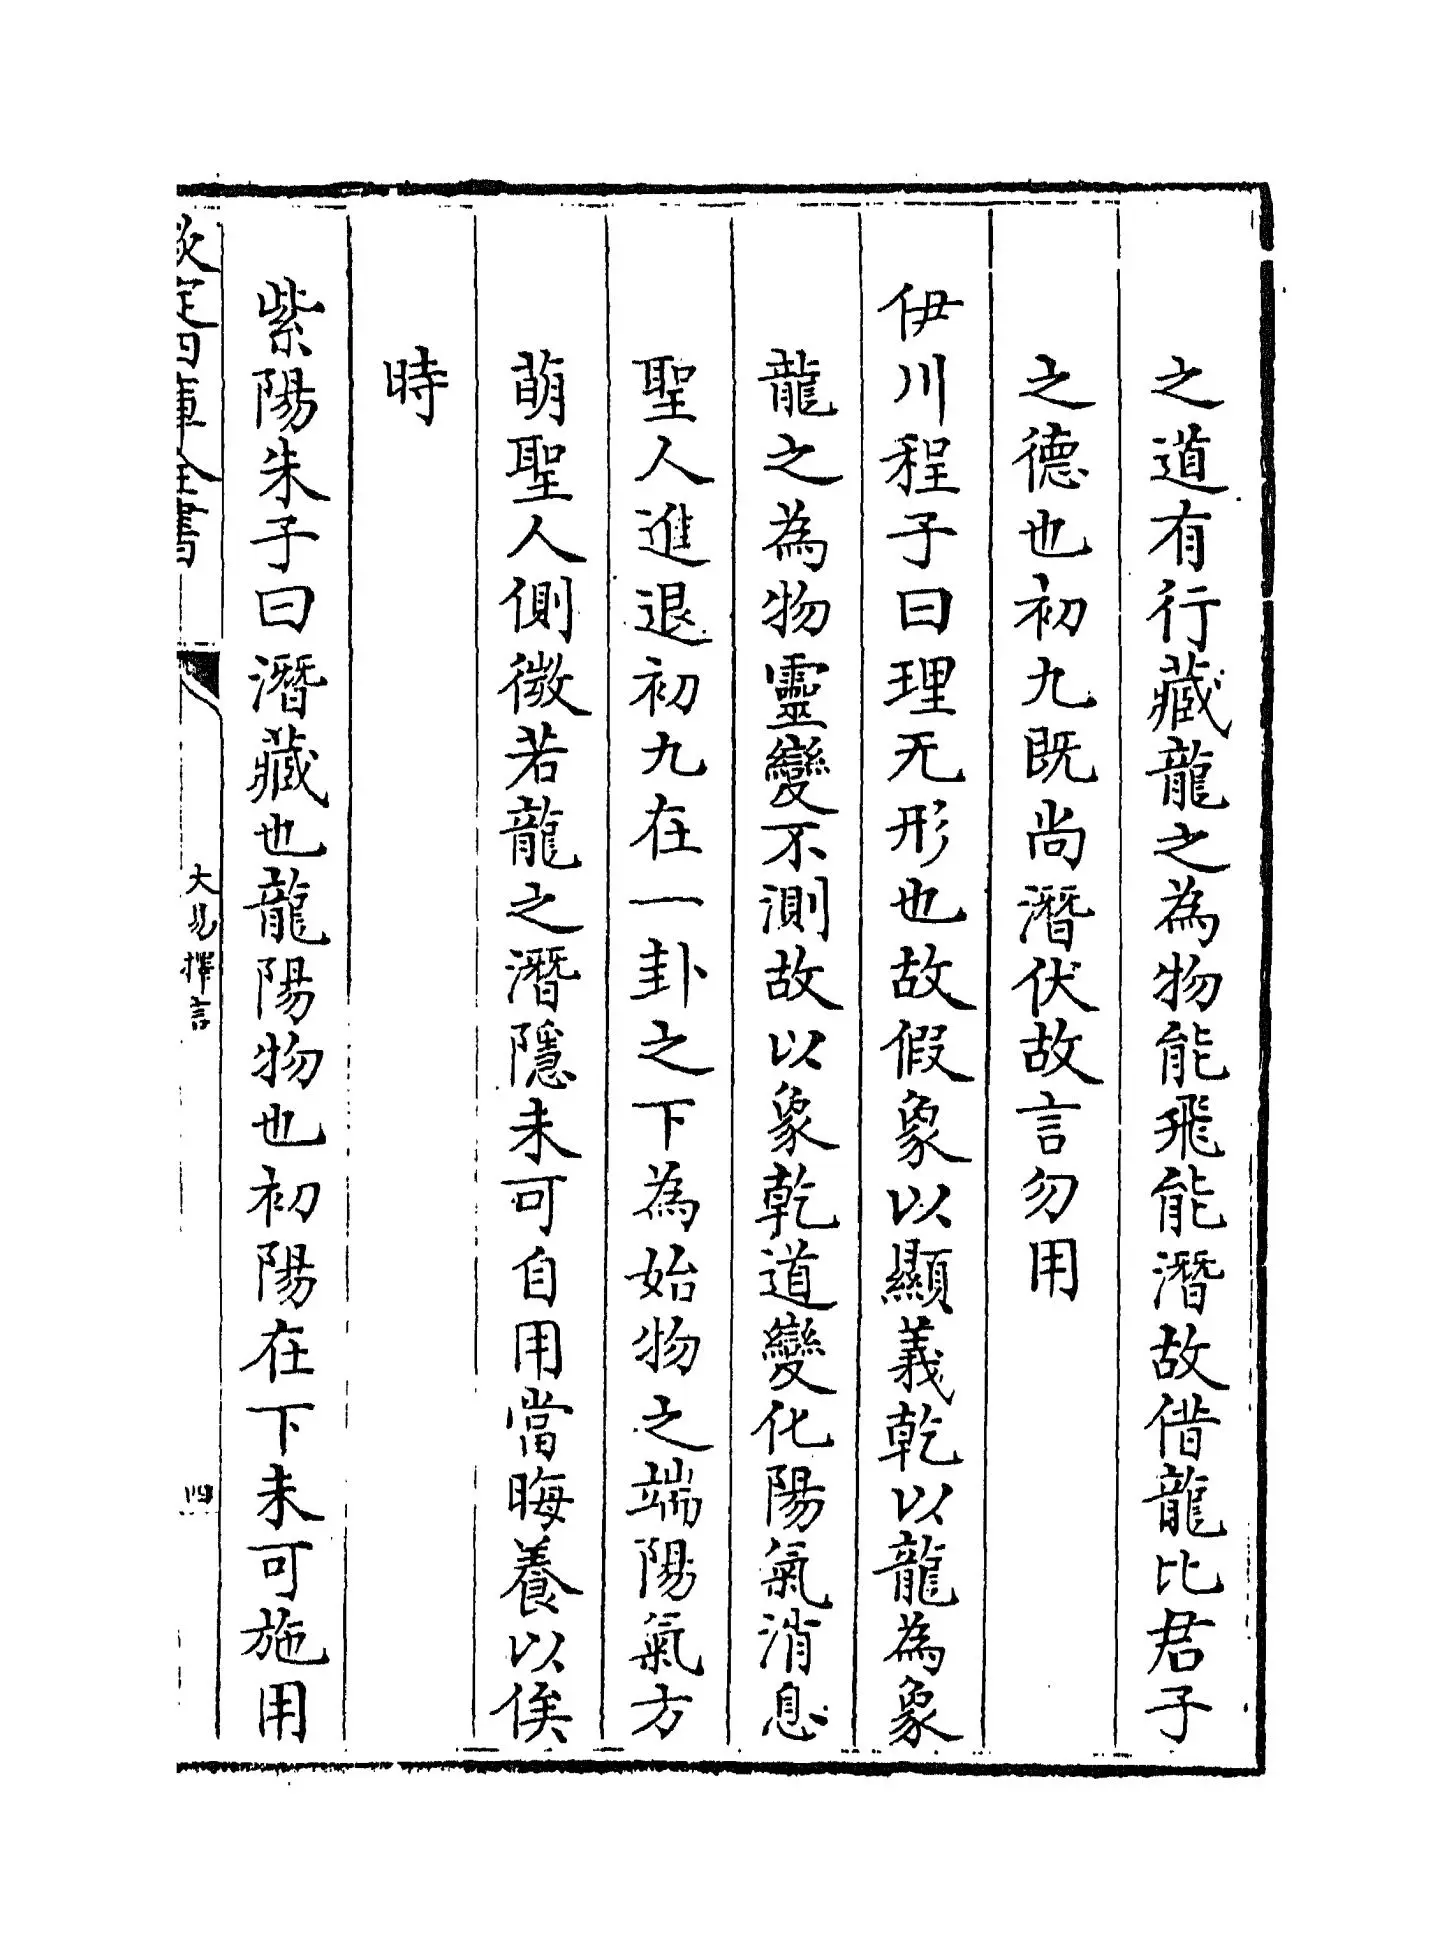 之道有行藏龍之為物能飛能潛故借龍比君子
之德也初九既尚潛伏故言勿用
伊川程子曰理无形也故假象以顯義乾以龍為象
龍之為物靈變不測故以象乾道變化陽氣消息
聖人進退初九在一卦之下為始物之端陽氣方
萌聖人側微若龍之潛隱未可自用當晦養以俟
時
紫陽朱子曰潛藏也龍陽物也初陽在下未可施用
欽定四庫全書
大易擇言
四